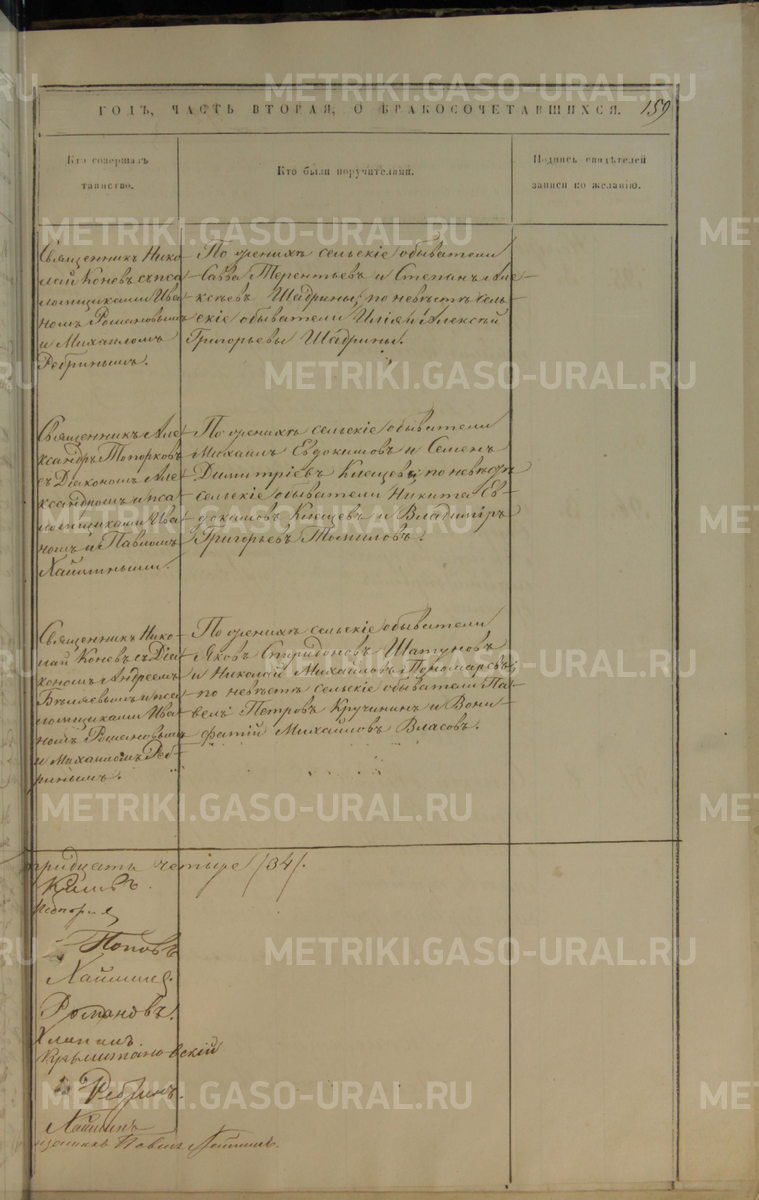 ГОДЪ, ЧАСТЬ ВТОРАЯ, О БРАКОСОЧЕТАВШИХСЯ. 159
Кто совершалъ
таинство.
Кто были поручителями.
Подпись свидѣтелей
записи по желанію.
Священникъ Нико-
лай Коневъ съ пса-
ломщиками Ива-
номъ Романовымъ
и Михаиломъ
Ребринымъ.
По женихѣ сельскіе обыватели
Савва Терентьевъ и Степанъ Але-
ксѣевъ Шадрины, по невѣстѣ сель-
скіе обыватели Илія и Алексѣй
Григорьевы Шадрины.
Священникъ Але-
ксандръ Топорковъ
съ Діакономъ Але-
ксандромъ и пса-
ломщиками Ива-
номъ и Павломъ
Хаймиными.
По женихѣ сельскіе обыватели
Михаилъ Евдокимовъ и Семенъ
Димитріевъ Клещевы, по невѣстѣ
сельскіе обыватели Никита Ев-
докимовъ Клещевъ и Владиміръ
Григорьевъ Томиловъ.
Священникъ Нико-
лай Коневъ съ Діа-
кономъ Андреемъ
Бѣляевымъ и пса-
ломщиками Ива-
номъ Романовымъ
и Михаиломъ Реб-
ринымъ.
По женихѣ сельскіе обыватели
Яковъ Спиридоновъ Шатуновъ
и Николай Михаиловъ Пономаревъ;
по невѣстѣ сельскіе обыватели Па-
велъ Петровъ Кручининъ и Вони-
фатій Михаиловъ Власовъ.
тридцать четыре /34/.
Поповъ
Романовъ.
Ребринъ.
Хайминъ
Павелъ
METRIKI.GASO-URAL.RU